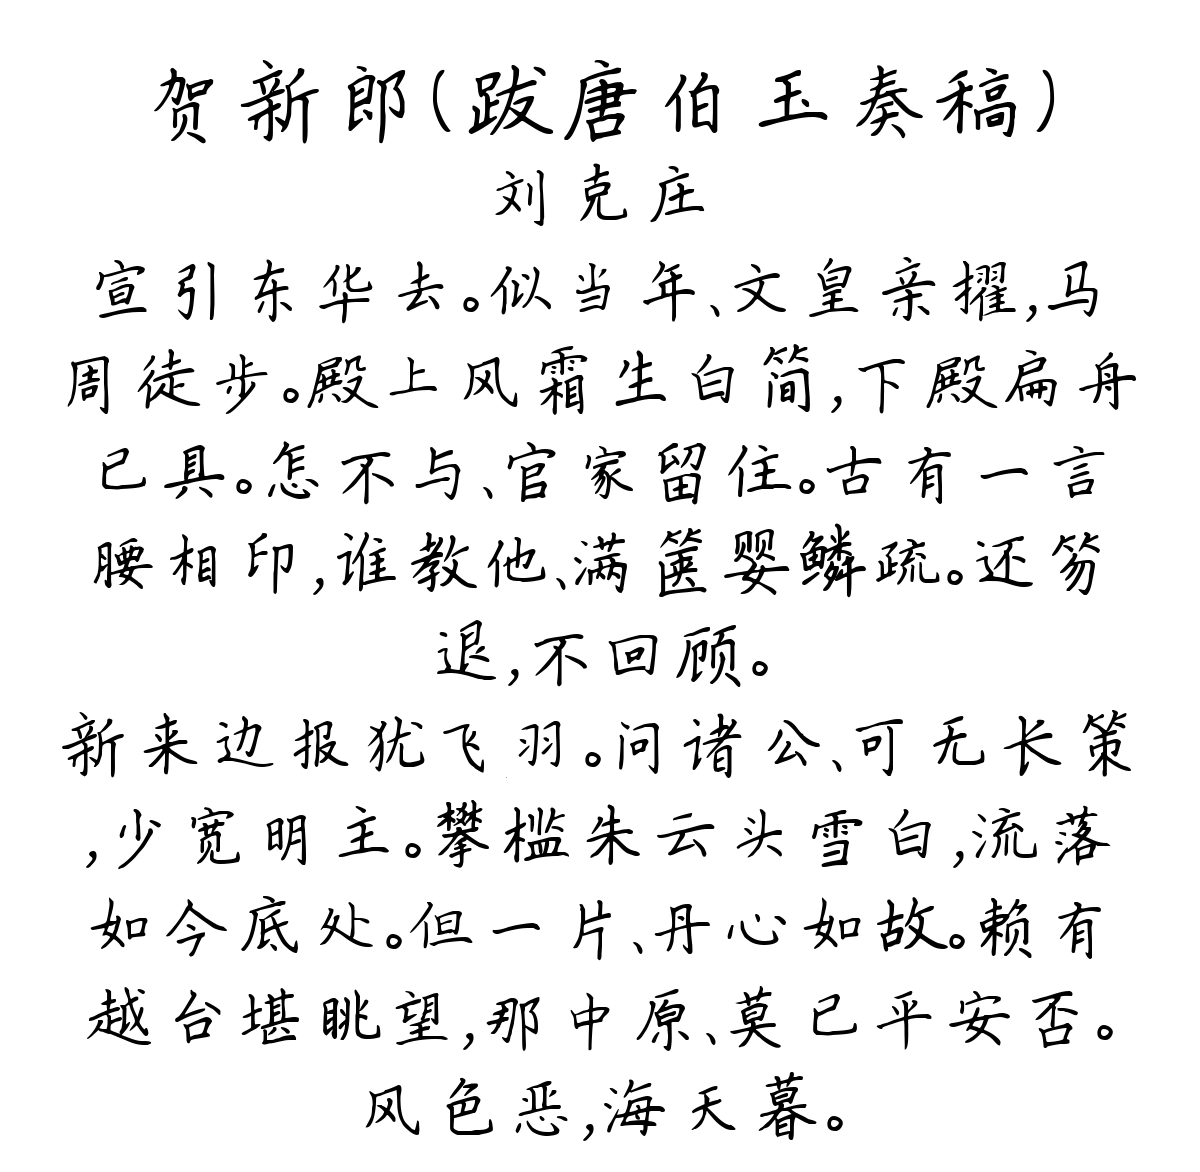 贺新郎(跋唐伯玉奏稿)
刘克庄
宣引东华去。似当年、文皇亲擢,马
周徒步。殿上风霜生白简,下殿扁舟
已具。怎不与、官家留住。古有一言
腰相印,谁教他、满箧婴鳞疏。还笏
退,不回顾。
新来边报犹飞羽。问诸公、可无长策
,少宽明主。攀槛朱云头雪白,流落
如今底处。但一片、丹心如故。赖有
越台堪眺望,那中原、莫已平安否。
风色恶,海天暮。